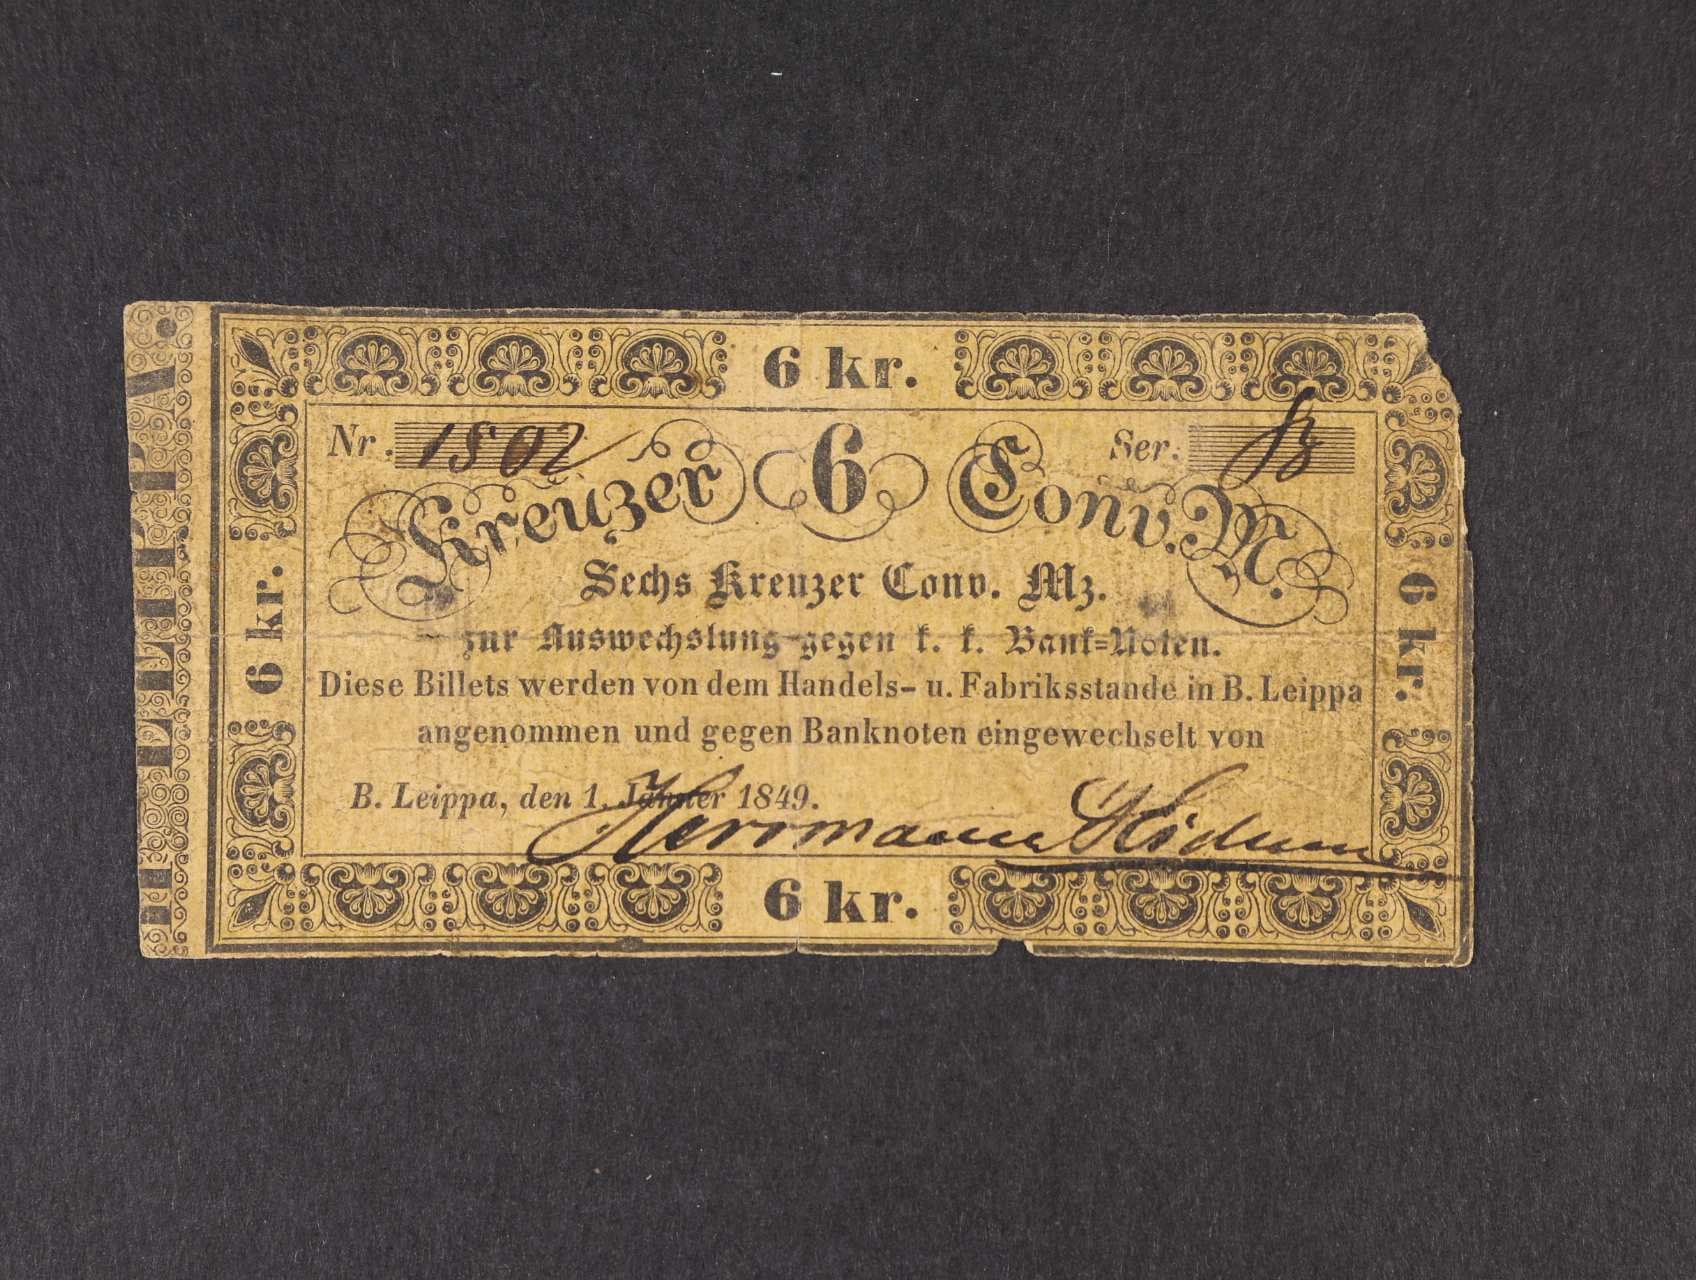 6 kr.
Nr. 1802
Ser.
Kreuzer 6 Conv. M.
Sechs Kreuzer Conv. Mz.
zur Auswechslung gegen k. k. Bank=Noten.
Diese Billets werden von dem Handels- u. Fabriksstande in B. Leippa
angenommen und gegen Banknoten eingewechselt von
B. Leippa, den 1. Jänner 1849.
Herrmann
6 kr.
6 kr.
6 kr.
LEIPPA.